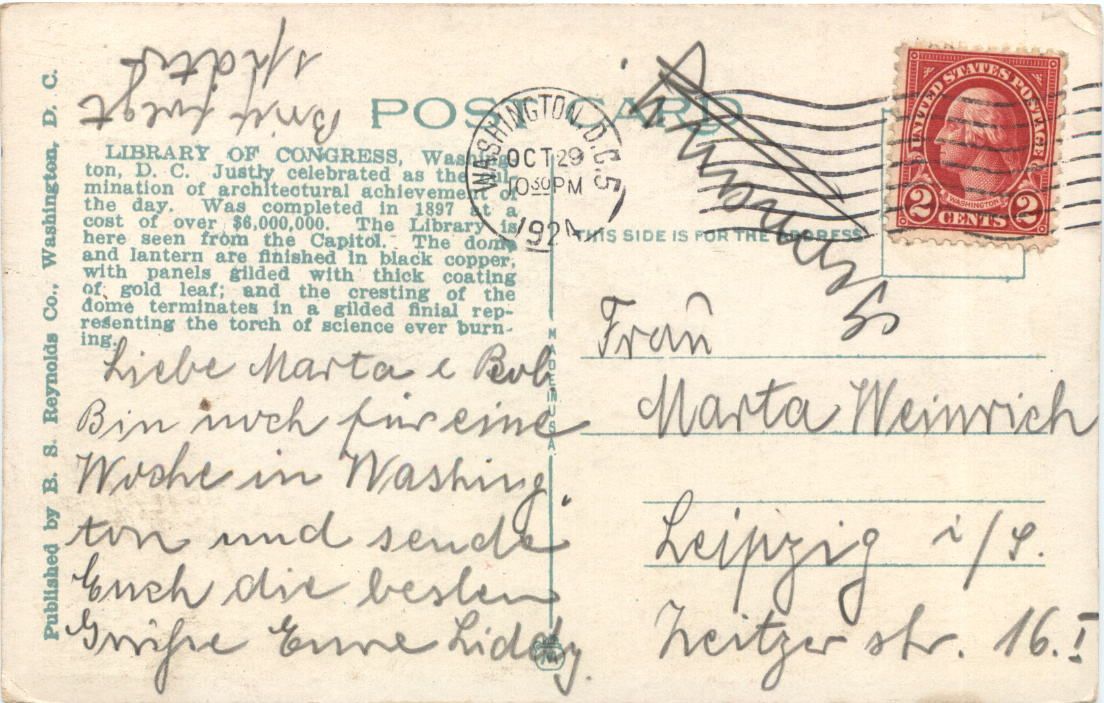 POST CARD
WASHINGTON, D.C. 5
OCT 29
10 30 PM
1924
UNITED STATES POSTAGE
WASHINGTON
2 CENTS 2
THIS SIDE IS FOR THE ADDRESS
Brief folgt
später
LIBRARY OF CONGRESS, Washing-
ton, D. C. Justly celebrated as the cul-
mination of architectural achievement of
the day. Was completed in 1897 at a
cost of over $6,000,000. The Library is
here seen from the Capitol. The dome
and lantern are finished in black copper,
with panels gilded with thick coating
of gold leaf; and the cresting of the
dome terminates in a gilded finial rep-
resenting the torch of science ever burn-
ing.
Liebe Marta e Bob
Bin noch für eine
Woche in Washing
ton und sende
Euch die besten
Grüße Eure
Frau
Marta Weinrich
Leipzig i/S.
Zeitzer str. 16.I
MADE IN U.S.A.
Published by B. S. Reynolds Co., Washington, D. C.